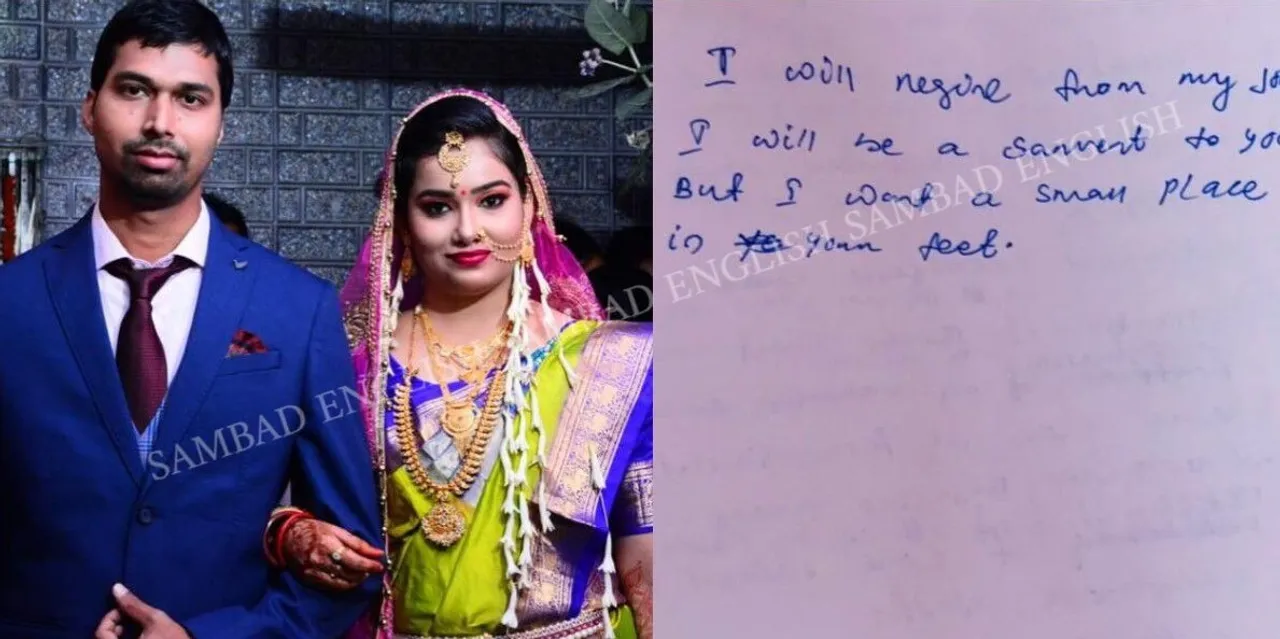 I will resine from my Jo
I will be a sarvent to you
But I want a small place
in your feet.
SAMBAD ENGLISH SAMBAD ENGLISH SAMBAD ENGLISH